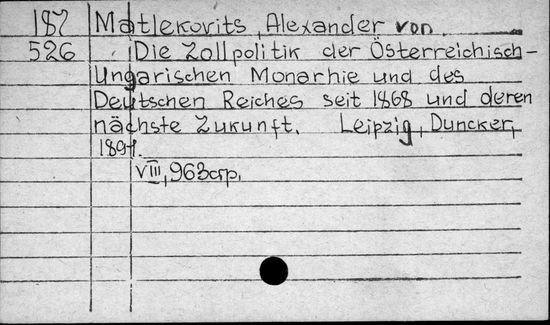 187 Matlekovits, Alexander von.
526 Die Zollpolitik der Österreichisch-
Ungarischen Monarhie und des
Deutschen Reiches seit 1868 und deren
nächste Zukunft. Leipzig, Duncker,
1891.
VIII, 963 стр.